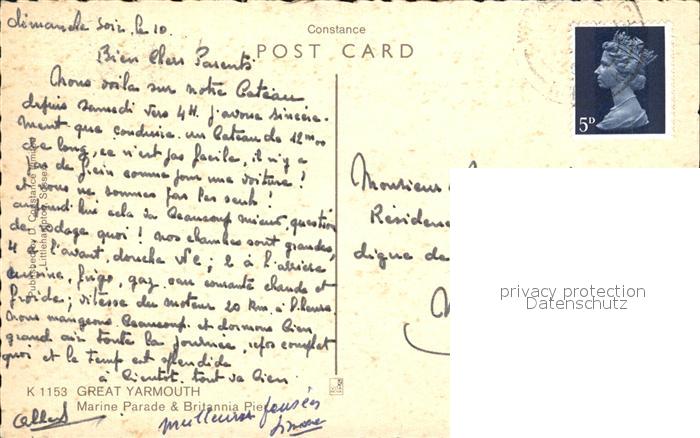 dimanche soir le 10.
Constance
POST CARD
Bien Chers Parents
Nous voila sur notre bateau
depuis samedi vers 4H. j'avoue sincère-
ment que conduire un bateau de 12m00
de long, ce n'est pas facile, il n'y a
pas de frein comme pour une voiture!
et nous ne sommes pas les seuls!
aujourd'hui cela va beaucoup mieux, question
de rodage quoi! nos chambres sont grandes,
4 à l'avant, douche wc; 2 à l'arrière
cuisine, frigo, gaz, eau courante chaude et
froide; vitesse du moteur 20 km à l'heure.
Nous mangeons beaucoup et dormons bien,
grand air toute la journée, repos complet
quoi et le temps est splendide
à bientôt. tout va bien
Published by D. Constance Limited
Littlehampton, Sussex
5D
Monsieur
Résidence
digue de
privacy protection
Datenschutz
K 1153 GREAT YARMOUTH
Marine Parade & Britannia Pier
Albert
meilleures pensées
Simone